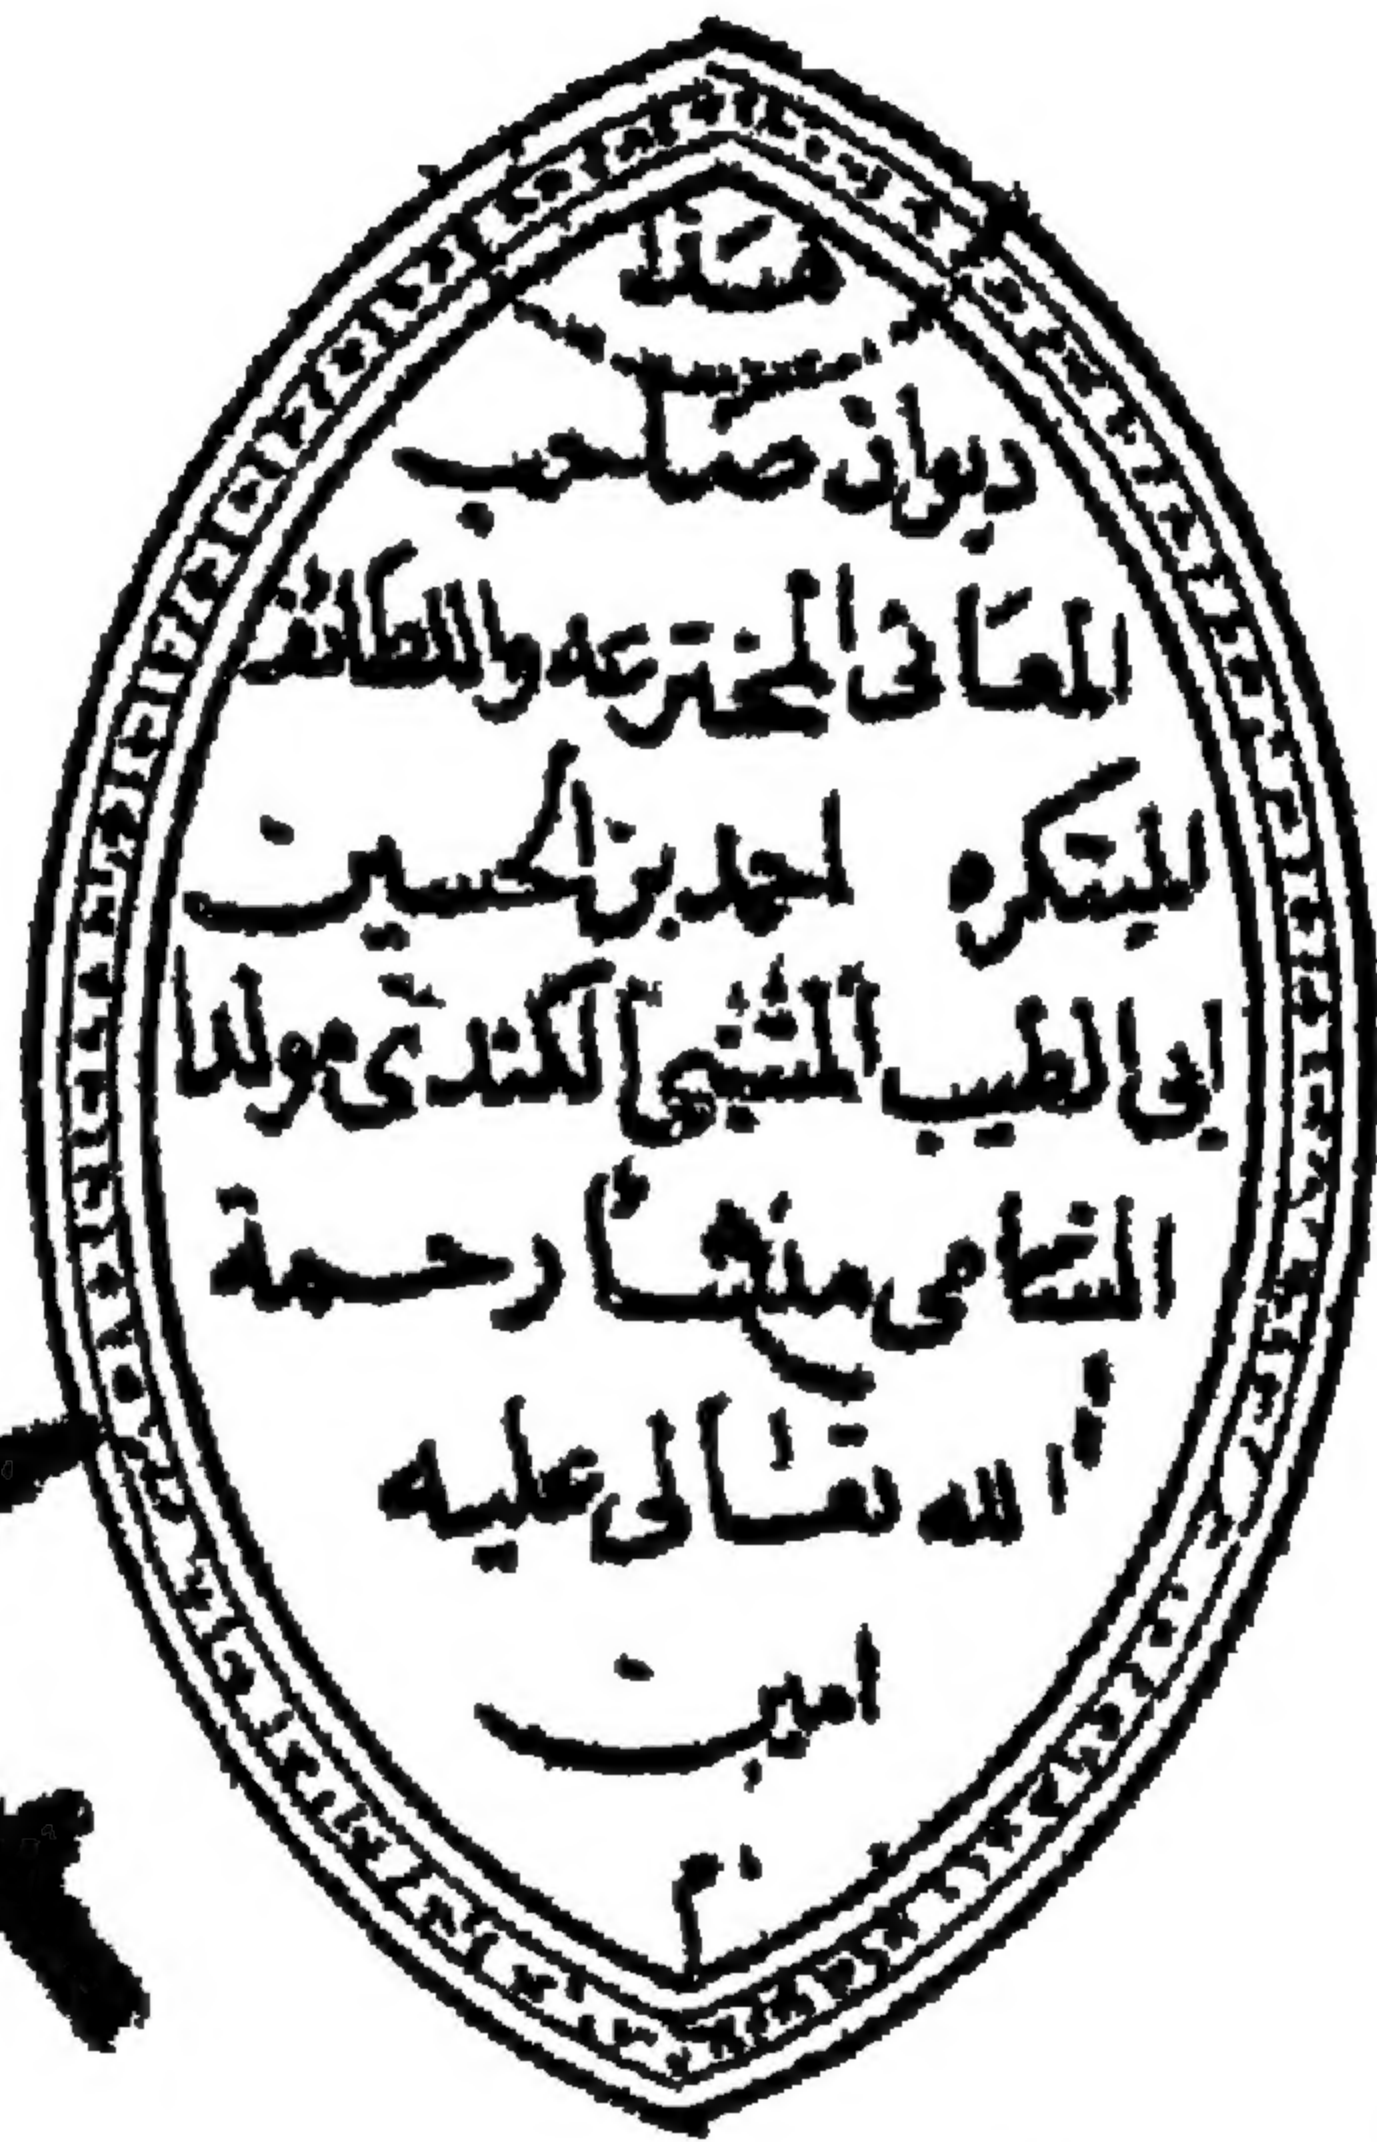 هذا
ديوان صاحب
المعانى المخترعه واللطائف
المبتكره احمد بن الحسين
ابى الطيب المتنبى الكندى مولدا
الشامى منشأ رحمة
الله تعالى عليه
امين
م